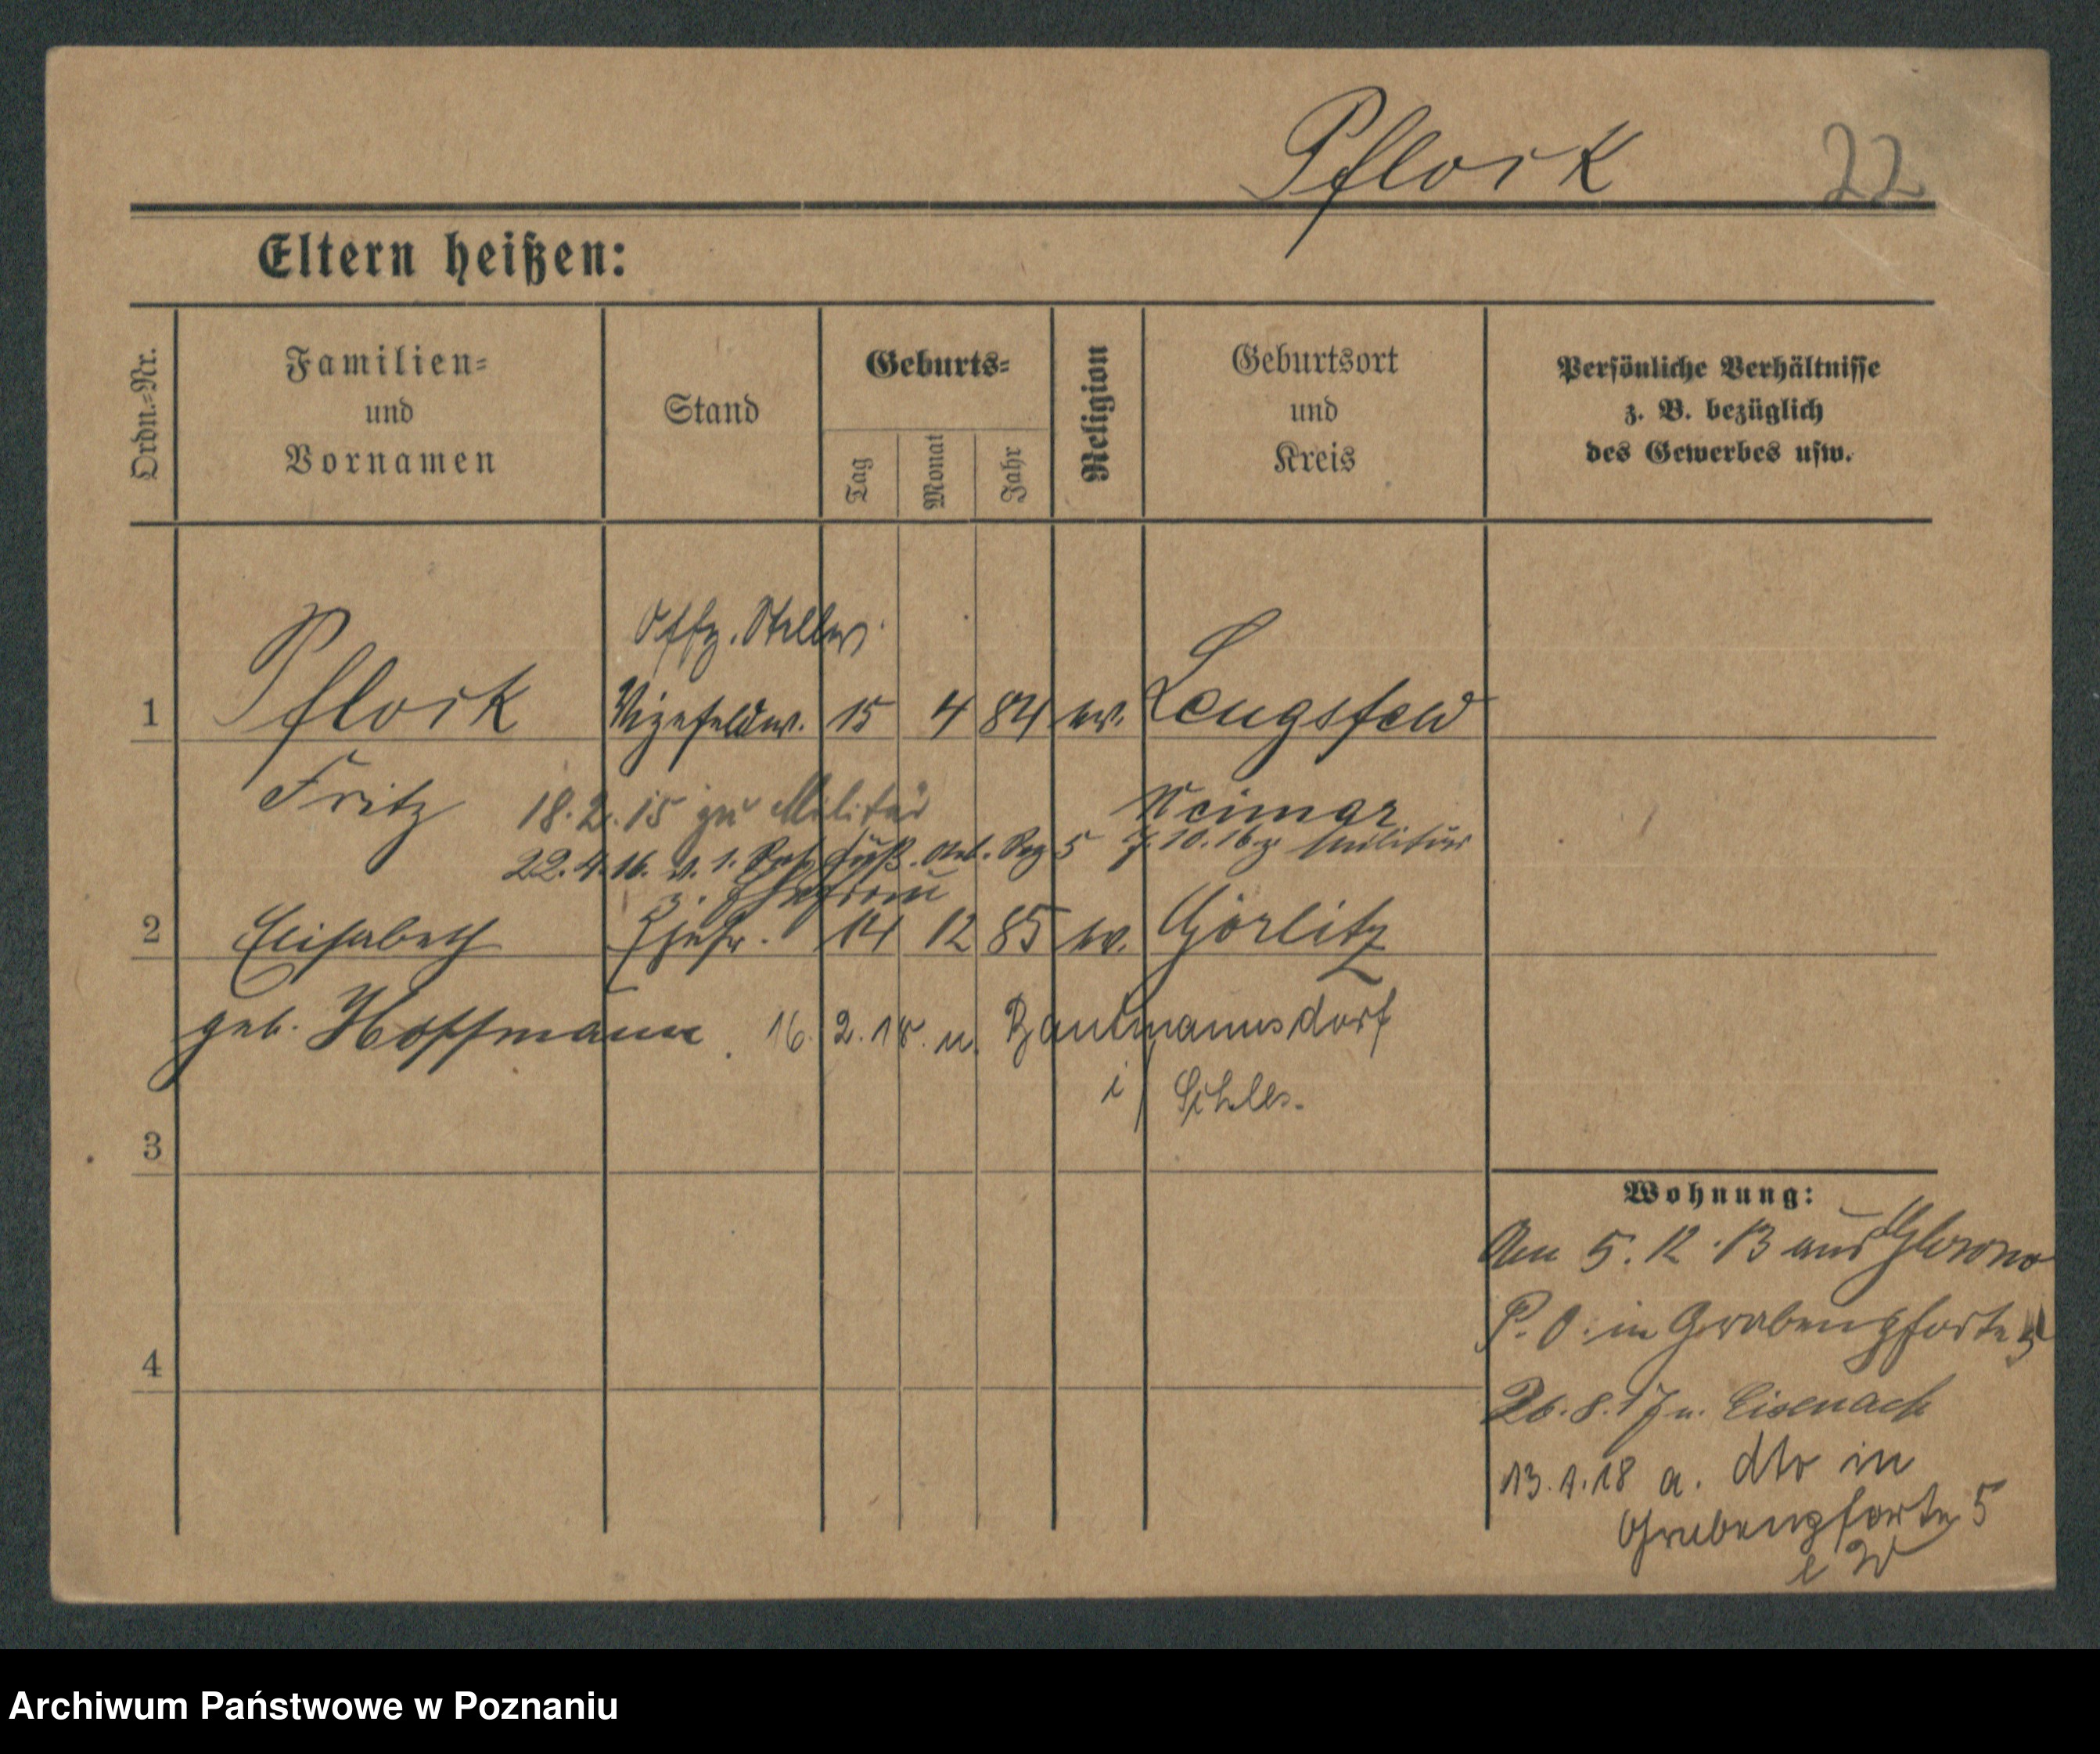 Pflock 22
Eltern heißen:
Ordn.-Nr.
Familien-
und
Vornamen
Stand
Geburts-
Tag
Monat
Jahr
Religion
Geburtsort
und
Kreis
Persönliche Verhältnisse
z. B. bezüglich
des Gewerbes usw.
Offz. Stellv.
1 Pflock Vizefeldw. 15 4 84 ev. Lengsfeld
Fritz Weimar
18.2.15 zu Militär
22.4.16. v. 1. Fuß. Art. Reg 5 7.10.16 z. Militär
z. Ehefrau
2 Elisabeth Ehefr. 14 12 85 ev. Görlitz
geb. Hoffmann. 16. 2. 18. n. Bautmannsdorf
i/ Schles.
3
4
Wohnung:
Am 5.12.13 aus Glowno
P. O. in Grabenpforte 5
26.8.17 n. Eisenach
13.1.18 a. dto in
Grabenpforte 5